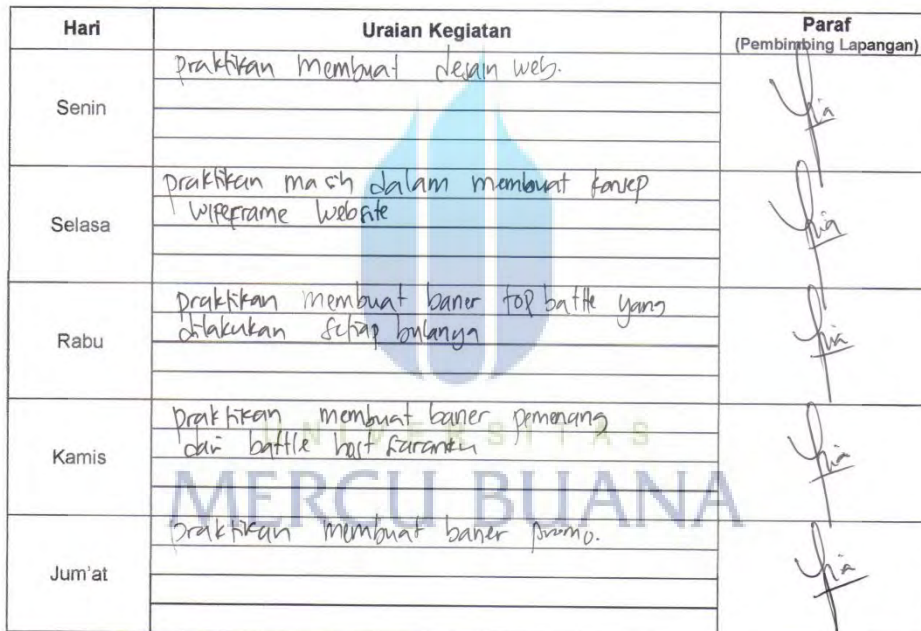 Hari
Uraian Kegiatan
Paraf
(Pembimbing Lapangan)
Senin
praktikan membuat desain web.
Selasa
praktikan masih dalam membuat konsep
wireframe website
Rabu
praktikan membuat baner top battle yang
dilakukan setiap bulanya
Kamis
praktikan membuat baner pemenang
dari battle host
UNIVERSITAS
MERCU BUANA
Jum'at
praktikan membuat baner promo.